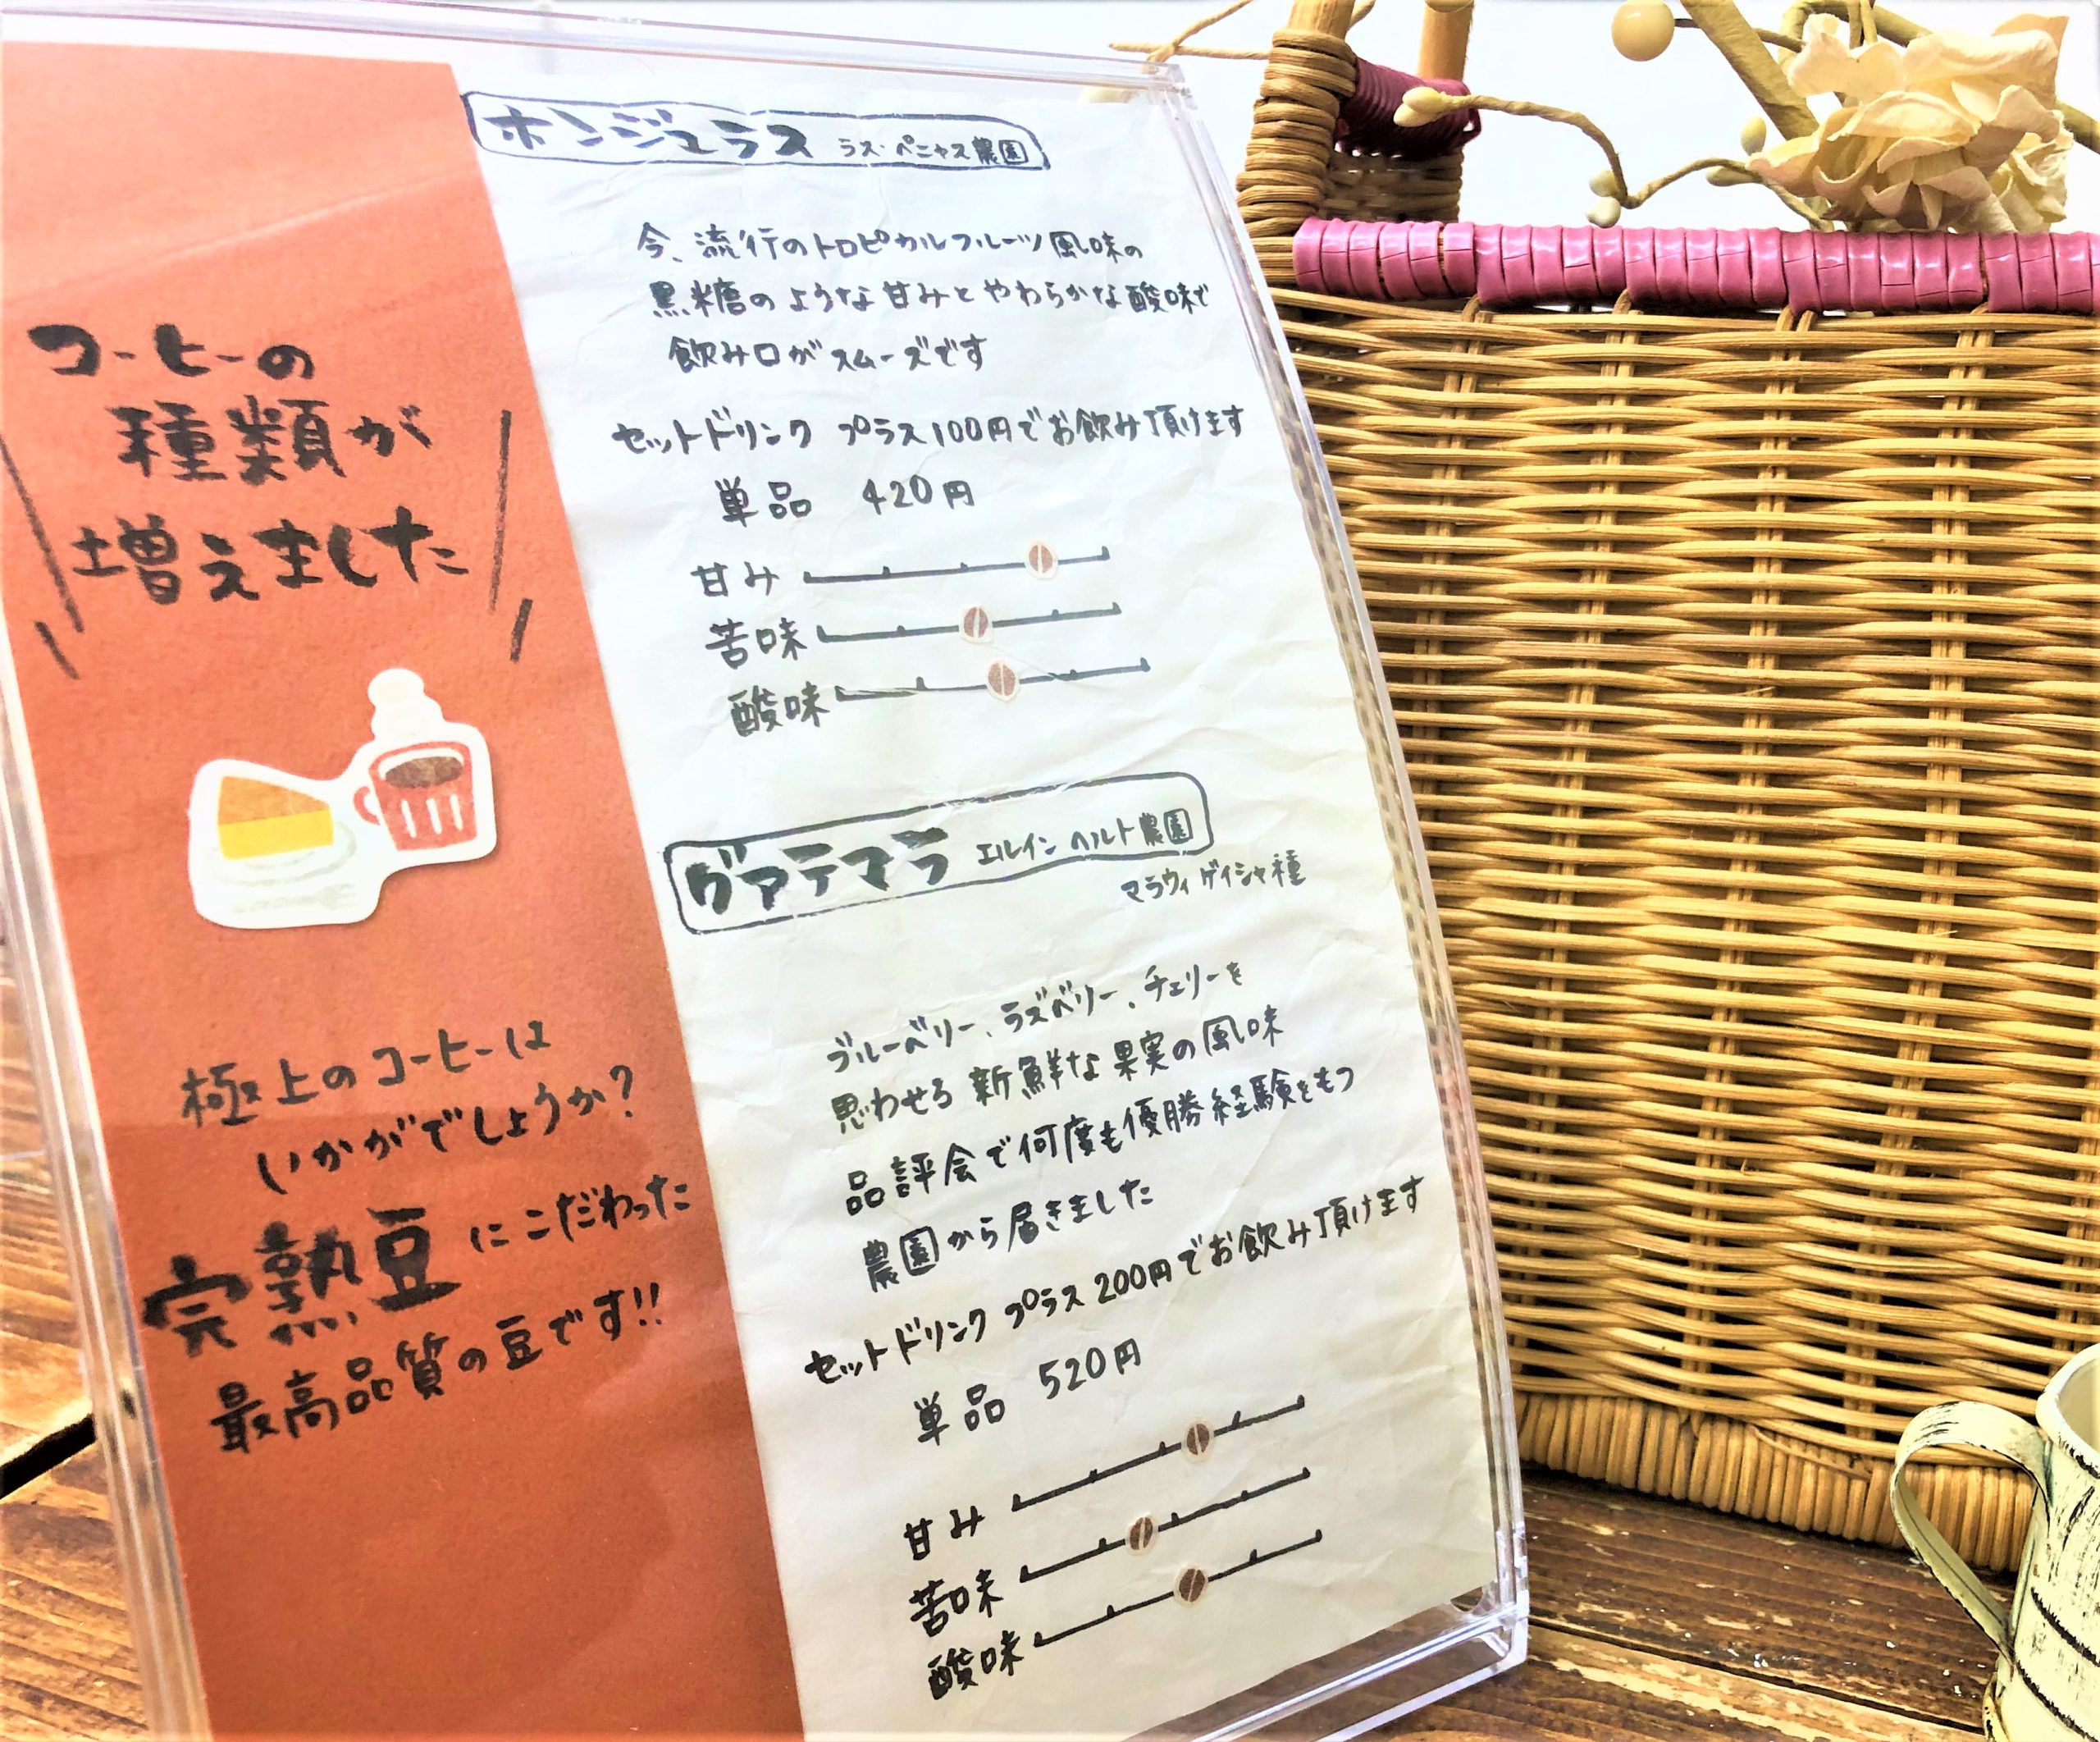 コーヒーの
種類が
増えました
極上のコーヒーは
いかがでしょうか?
完熟豆にこだわった
最高品質の豆です!!
ホンジュラス ラス・ペニャス農園
今、流行のトロピカルフルーツ風味の
黒糖のような甘みとやわらかな酸味で
飲み口がスムーズです
セットドリンク プラス100円でお飲み頂けます
単品 420円
甘み
苦味
酸味
グァテマラ エルイン ヘルト農園
マラウィ ゲイシャ種
ブルーベリー、ラズベリー、チェリーを
思わせる 新鮮な果実の風味
品評会で何度も優勝経験をもつ
農園から届きました
セットドリンク プラス 200円でお飲み頂けます
単品 520円
甘み
苦味
酸味